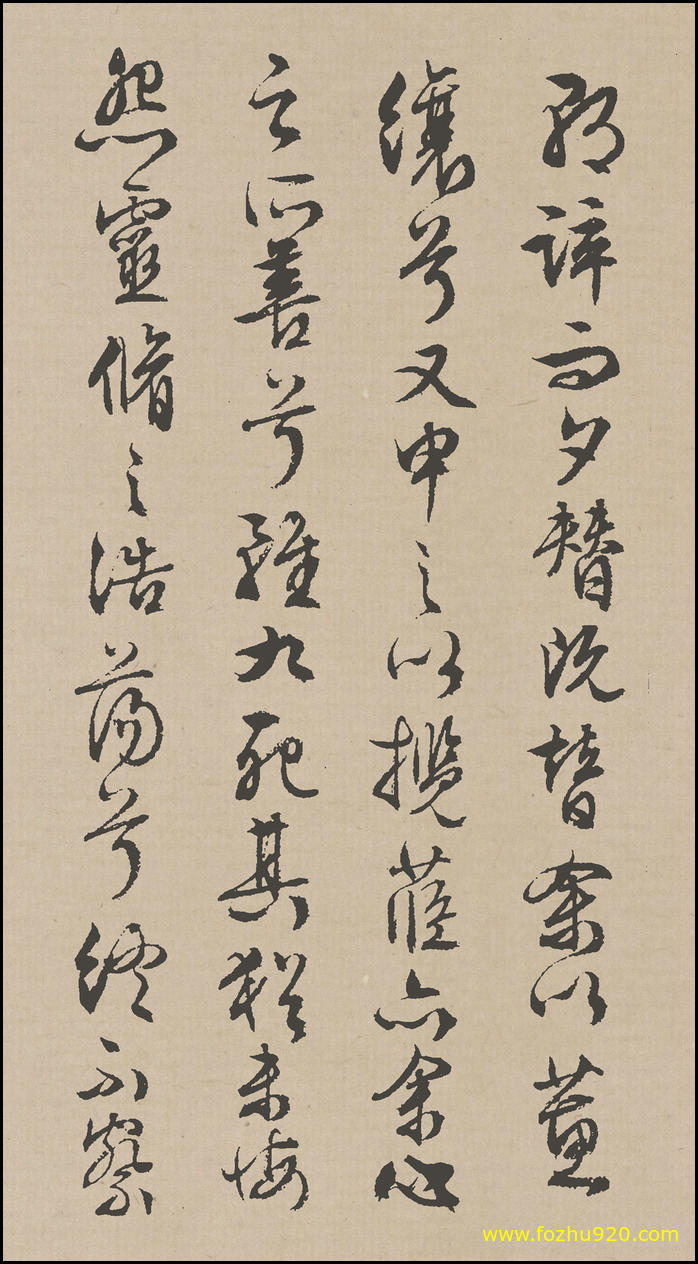 朝誶而夕替既替余以蕙
纕兮又申之以攬茝亦余心
之所善兮雖九死其猶未悔
怨靈脩之浩蕩兮終不察
www.fozhu920.com